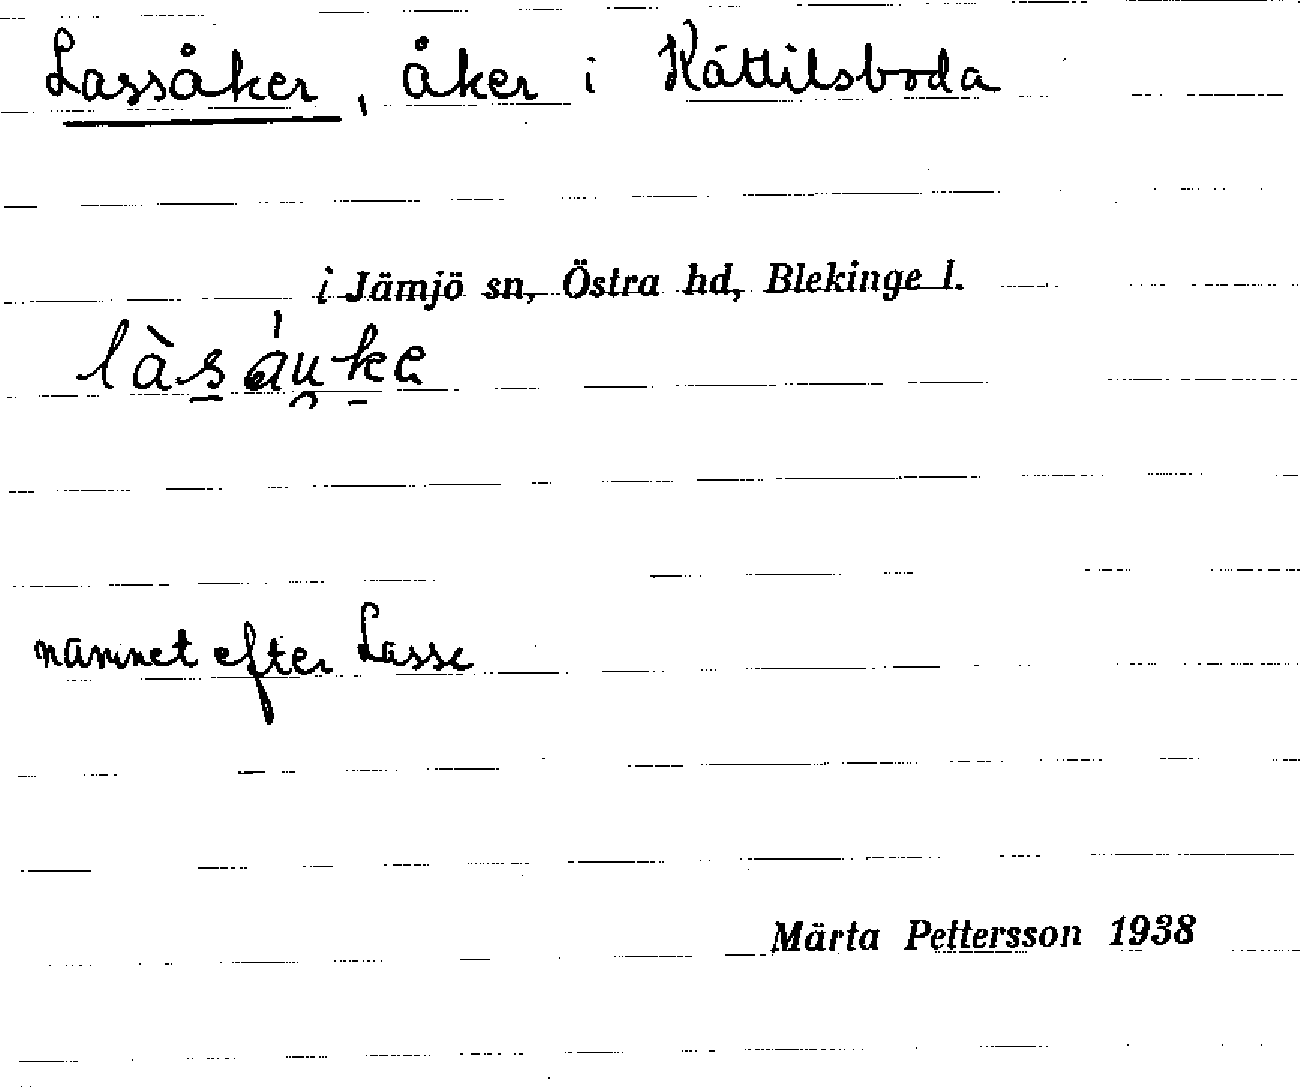 Lassåker, åker i Kättilsboda
i Jämjö sn, Östra hd, Blekinge l.
namnet efter Lasse
Märta Pettersson 1938